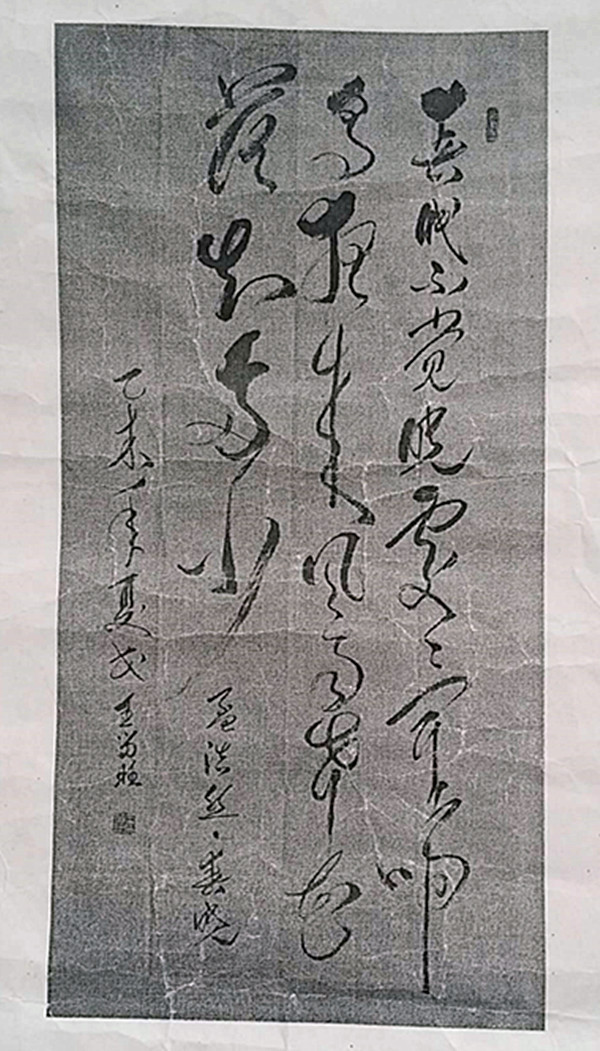 春眠不觉晓處々闻啼
鸟夜来风雨声花
落知多少
孟浩然·春晓
乙未年夏